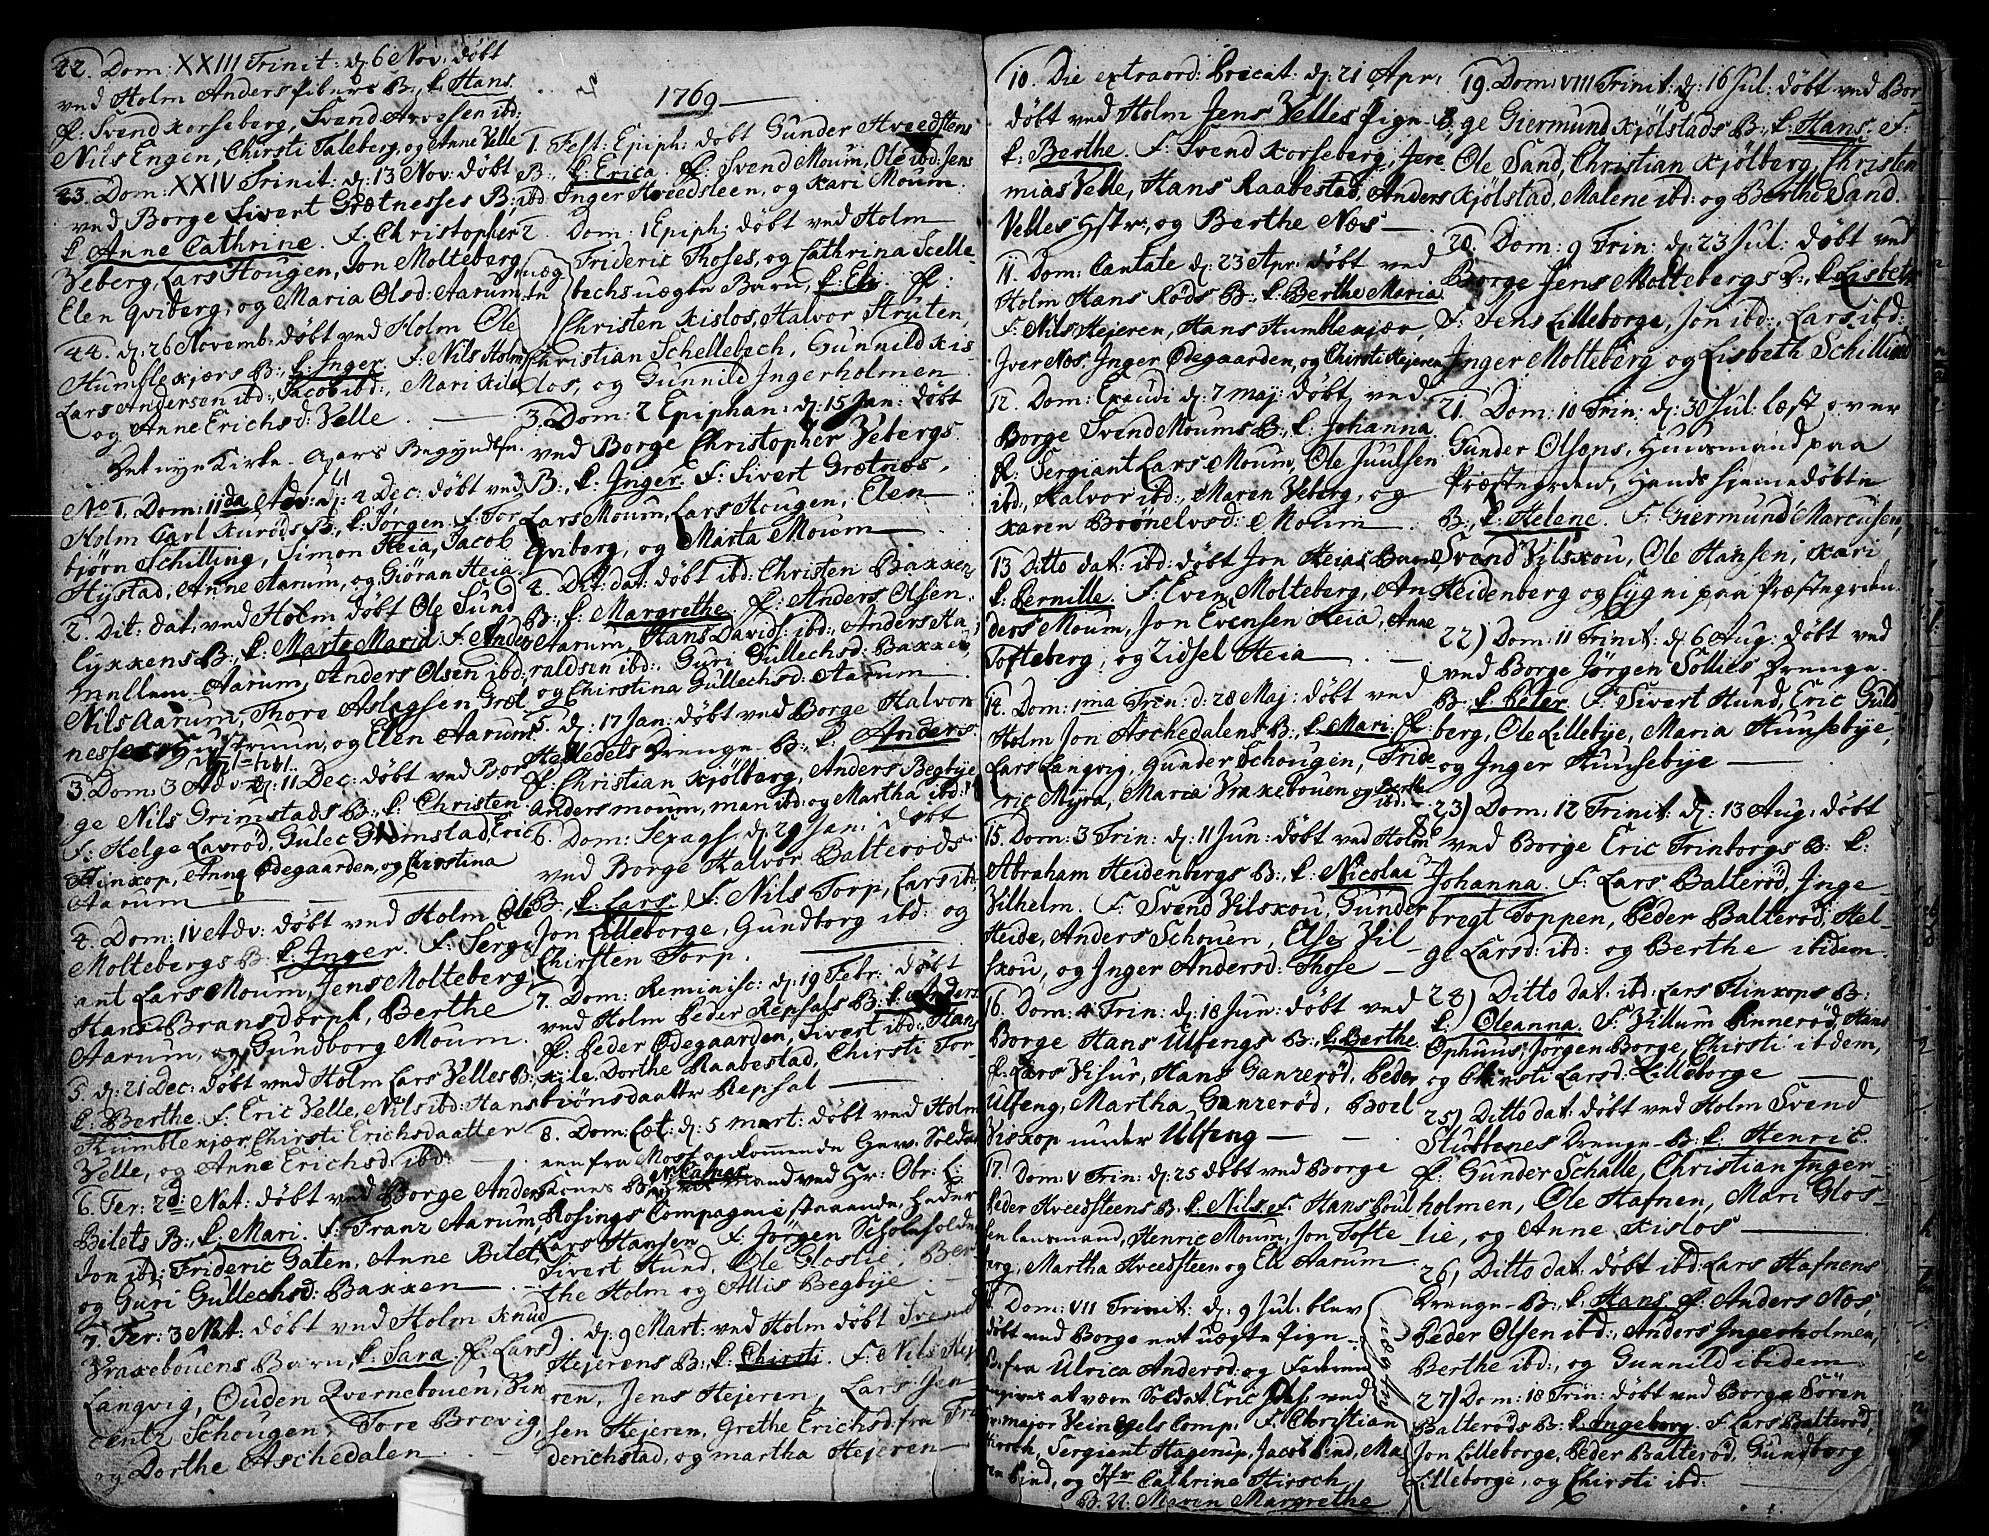 42. Dom: XXIII Trinit: d: 6 Nov: døbt
ved Holm Anders Pibers B:, k: Hans.
F: Svend Korseberg, Svend Arvesen ibd:
Nils Engen, Chirsti Taleberg, og Anne Velle
43. Dom: XXIV Trinit: d: 13 Nov: døbt
ved Borge Sivert Grætnesses B:
k: Anne Cathrine. F: Christopher
Veberg, Lars Hougen, Jon Molteberg
Elen Qviberg, og Maria Olsd: Aarum
44. d: 26 Novemb: døbt ved Holm Ole
Humblekjærs B:, k: Inger. F: Nils Holm
Lars Andersen ibd:, Jacob ibd:, Mari Kile
og Anne Erichsd: Velle
Det nye Kirke-Aars Begyndelse
No 1. Dom: IIda Adv: d: 4 Dec: døbt ved
Holm Carl Kurøds B:, k: Jørgen. F: Tor
bjørn Schilling, Simon Heia, Jacob
Hystad, Anne Aarum, og Giøran Heia
2. Dit: dat: ved Holm døbt Ole Sund
Lykkens B:, k: Marte Maria. F: Anders
Mullem Aarum, Anders Olsen ibd:
Nils Aarum, Thore Aslagsen Græt
nesses Hustruu, og Elen Aarum
3. Dom: 3 Adv: d: 11 Dec: døbt ved Bor
ge Nils Grimstads B:, k: Christen
F: Helge Lavrød, Gulec Grimstad, Eric
Flinkop, Anne Ødegaarden, og Chirstina
Aarum
4. Dom: IV Adv: døbt ved Holm Ole
Moltebergs B: k: Inger. F: Sergi
ant Lars Moum, Jens Molteberg,
Hans Bransdorph, Berthe
Aarum, og Gundborg Moum.
5. d: 21 Dec: døbt ved Holm Lars Velles B:,
k: Berthe. F: Eric Velle, Nils ibd: Hans
Humblekjær, Chirsti Erichsdaatter
Velle, og Anne Erichsd: ibd:
6. Fer: 2d: Nat: døbt ved Borge Anders
Bilets B:, k: Mari. F: Franz Aarum,
Jon ibd:, Frideric Gaten, Anne Bilet,
og Guri Gullechsd: Bakken
7. Fer: 3 Nat: døbt ved Holm Knud
Vraxebouens Barn, k: Sara. F: Lars
Langvig, Ouden Qvernebouen, Vin
centz Schougen, Tore Brevig,
og Dorthe Aschedalen
1769
1. Fest: Epiph: døbt Gunder Hveedstens
B:, k: Erica. F: Svend Moum, Ole ibd: Jens
ibd: Inger Hveedsteen, og Kari Moum.
2. Dom: 1 Epiph: døbt ved Holm
Frideric Thoses, og Cathrina Scelle
bechs uægte Barn, k: Eli. F:
uæg
te
Christen Kislos, Halvor Struten,
Christian Schellebech, Gunnild Kis
los, og Gunnild Ingerholmen
3. Dom: 2 Epiphan: d: 15 Jan: døbt
ved Borge Christopher Vebergs
B:, k: Inger. F: Sivert Grætnes,
Lars Moum, Lars Hougen, Elen
Qviberg, og Marta Moum
4. Dit: dat: døbt ibd: Christen Bakkens
B:, k: Margrethe. F: Anders Olsen
Aarum, Hans Davids: ibd:, Anders Ha
raldsen ibd:, Guri Gullechsd: Bakken
og Chirstina Gullechsd: Aarum
5. d: 17 Jan: døbt ved Borge Halvor
Helledels Drenge-B:, k: Anders
F: Christian Kjølberg, Anders Begbye
Anders Moum, man ibd: og Martha ibd:
6. Dom: Sexages: d: 29 Jan: døbt
ved Borge Halvor Balterøds
B:, k: Lars. F: Nils Torp, Lars ibd:
Jon Lilleborge, Gundborg ibd: og
Chirsten Torp.
7. Dom: Reminisc: d: 19 Febr: døbt
ved Holm Peder Repsals B:, k: Anders
F: Peder Ødegaarden, Sivert ibd: Hans
Kile, Dorthe Raabestad, Chirsti Tor
biønsdaatter Repsal
8. Dom: Læt: d: 5 Mart: døbt ved Holm
een fra Moss opkommende Gev: Soldat
Casper
Rosings Compagnie staaende, Peder
Lars Hansen F: Jørgen Scholeholder
Sivert Hund, Ole Gloslie, Ber
the Holm og Allis Begbye
9. d: 9 Mart: ved Holm døbt Svend
Hejerens B:, k: Chirsti. F: Nils Heje
ren, Jens Hejeren, Lars Jen
sen Hejeren, Grethe Erichsd: fra Fri
derichstad, og Martha Hejeren
10. Die extraord: Precat: d: 21 Apr:
døbt ved Holm Jens Velles Pige-B:
k: Berthe. F: Svend Korseberg, Jere
mias Velle, Hans Raabestad, Anders
Velles Hstr: og Berthe Næs
11. Dom: Cantate d: 23 Apr: døbt ved
Holm Hans Røds B:, k: Berthe Maria
F: Nils Hejeren, Hans Humblekjær,
Iver Næs, Inger Ødegaarden, og Chirsti Hejeren
12. Dom: Exaudi d: 7 Maj: døbt ved
Borge Svend Moums B:, k: Johanna
F: Sergiant Lars Moum, Ole Juulsen
ibd:, Halvor ibd:, Maren Veberg, og
Karen Brønelvsd: Moum
13. Ditto dat: ibd: døbt Jon Heias Barn
k: Pernille. F: Even Molteberg, An
ders Moum, Jon Evensen Heia, Anne
Tofteberg, og Zidsel Heia
14. Dom: 1ma Trin: d: 28 Maj: døbt ved
Holm Jon Aschedalens B:, k: Mari. F:
Lars Langvig, Gunder Schougen, Fride
ric Myra, Maria Vraxebouen og Berthe
ibd:
15. Dom: 3 Trin: d: 11 Jun: døbt ved Holm
Abraham Heidenbergs B:, k: Nicolai
Vilhelm. F: Svend Vilskou, Gunder
Heide, Anders Schouen, Else Vil
skou, og Inger Andersd: Those
16. Dom: 4 Trin: d: 18 Jun: døbt ved
Borge Hans Ulfengs B:, k: Berthe.
F: Lars Visur, Hans Ganzerød, Peder
Ulfeng, Martha Ganzerød, Boel
Viskop under Ulfeng
17. Dom: V Trin: d: 25 døbt ved Borge
Peder Hveedsteens B. k: Nils. F: Hans Poul
sen Lænsmand, Henric Moum, Jon Tofte
berg, Martha Hveedsteen og Eli Aarum
Dom: VII Trinit: d: 9 Jul: blev
døbt ved Borge et uægte Pige-
B: fra Ulrica Andersd: og Faderen
angives at være Soldat Eric Johs: ved
Gr: Major Heinzels Comp: F: Christian
Hirsch, Sergiant Hagerup, Jacob Lind, Ma
ren Lind, og Hr: Cathrina Hirsch
B. N. Maren Margrethe
uægte
19. Dom: VIII Trinit: d: 16 Jul: døbt ved Bor-
ge Giermund Kjølstads B:, k: Hans. F:
Ole Sand, Christian Kjølberg, Christen
Kjølstad, Malene ibd: og Berthe Sand.
20. Dom: 9 Trin: d: 23 Jul: døbt ved
Borge Jens Moltebergs B:, k: Lisbeth
F: Jens Lilleborge, Jon ibd:, Lars ibd:
Inger Molteberg og Lisbeth Schilling
21. Dom: 10 Trin: d: 30 Jul: læst over
Gunder Olsens, Huusmand paa
Præstegrden, Hands hjemmedøbte
B:, k: Helene. F: Giermund Marcusen,
Svend Vilskou, Ole Hansen, Kari
Heidenberg og Cygni paa Præstegrden.
22) Dom: 11 Trinit: d: 6 Aug: døbt ved
ved Borge Jørgen Sollies Drenge-
B:, k: Peter. F: Sivert Hund, Eric Guld
berg, Ole Lillebye, Maria Huusebye,
og Inger Huusebye
23) Dom: 12 Trinit: d: 13 Aug: døbt
ved Borge Eric Trinborgs B: k:
Johanna. F: Lars Balterød, Inge-
bregt Toppen, Peder Balterød, Hel-
ge Larsd: ibd: og Berthe ibidem
24) Ditto dat: ibd: Lars Flinkops B:
k: Oleanna. F: Villum Pinnerød, Hans
Ophuus, Jørgen Borge, Chirsti ibidem,
og Chirsti Larsd: Lilleborge
25) Ditto dat: døbt ved Holm Svend
Stubbenes Drenge-B: k: Henric.
F: Gunder Schalle, Christian Inger
holmen, Ole Hafnen, Mari Glos-
lie, og Anne Kislos
26) Ditto dat: døbt ibd: Lars Hafnens
Drenge-B:, k: Hans F: Anders Næs,
Peder Olsen ibd:, Anders Ingerholmen,
Berthe ibd:, og Gunnild ibidem
27) Dom: 18 Trin: døbt ved Borge Søren
Balterøds B: k: Ingeborg. F: Lars Balterød,
Jon Lilleborge, Peder Balterød, Gundborg
Lilleborge, og Chirsti ibd: